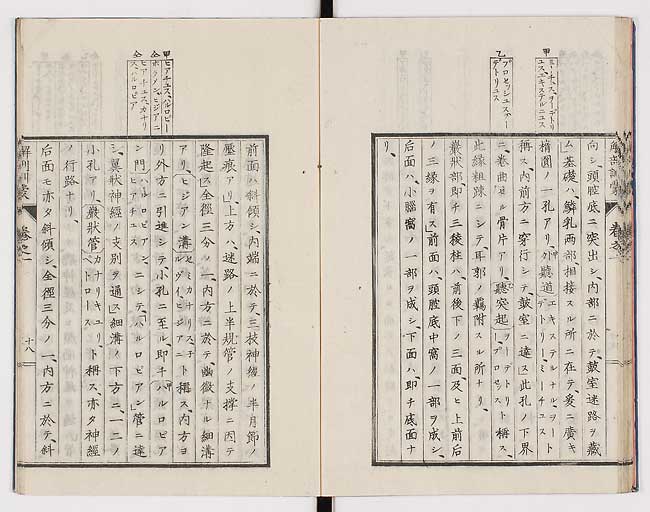 甲
ミーチュス、ヲーデトリ
ユス、エキステルニュス
乙
プロセッシュス、ヲー
デトリユス
向シ、頭腔底ニ突出シ、内部ニ於テ、鼓室迷路ヲ蔵
ム、基礎ハ、鱗乳兩部相接スル所ニ在テ爰ニ廣キ
橢圓ノ一孔アリ、外聽道
エキステルナル、ヲート
デトリーミーチュス
ト
稱ス、内前方ニ穿行シテ、鼓室ニ達ス、此孔ノ下界
ニ、卷曲セル骨片アリ、聽突起
ヲーデトリ
プロセス
ト稱ス、
此緣粗踈ニシテ耳郭ノ羈附スル所ナリ、
巖狀部、即チ三稜柱ハ、前後下ノ三面、及ヒ上前后
ノ三緣ヲ有ス、前面ハ、頭腔底中窩ノ一部ヲ成シ、
后面ハ、小腦窩ノ一部ヲ成シ、下面ハ、即チ底面ナ
リ、
解剖訓蒙
卷之一
甲
ヒアチュス、ハルロピー
仝
ホラメン、ヒジアニー
仝
ヒアチュス、カナリ
ス、ハルロピア
前面ハ斜傾シ、内端ニ於テ、三枝神經ノ半月節ノ
壓痕アリ、上方ハ、迷路ノ上半規管ノ支撑ニ因テ
隆起ス、全徑三分ノ一、内方ニ於テ、幽微ナル細溝
アリ、ヒジアン溝
セミカナリス子
ルヴイ、ヒジアニ
ト稱ス、内方ヨ
リ外方ニ引進シテ小孔ニ至ル即チハルロピア
ン門
ハルロピアン、
ヒアチュス
ニシテ、ハルロピアン管ニ達
シ、翼狀神經ノ支別ヲ通ス、細溝ノ下方ニ、一二ノ
小孔アリ、巖狀管
カナリキユリ、
ペトロース
ト稱ス、亦タ神經
ノ行路ナリ、
后面モ亦タ斜傾シ、全徑三分ノ一、内方ニ於テ、斜
解剖訓蒙
卷之一
十八